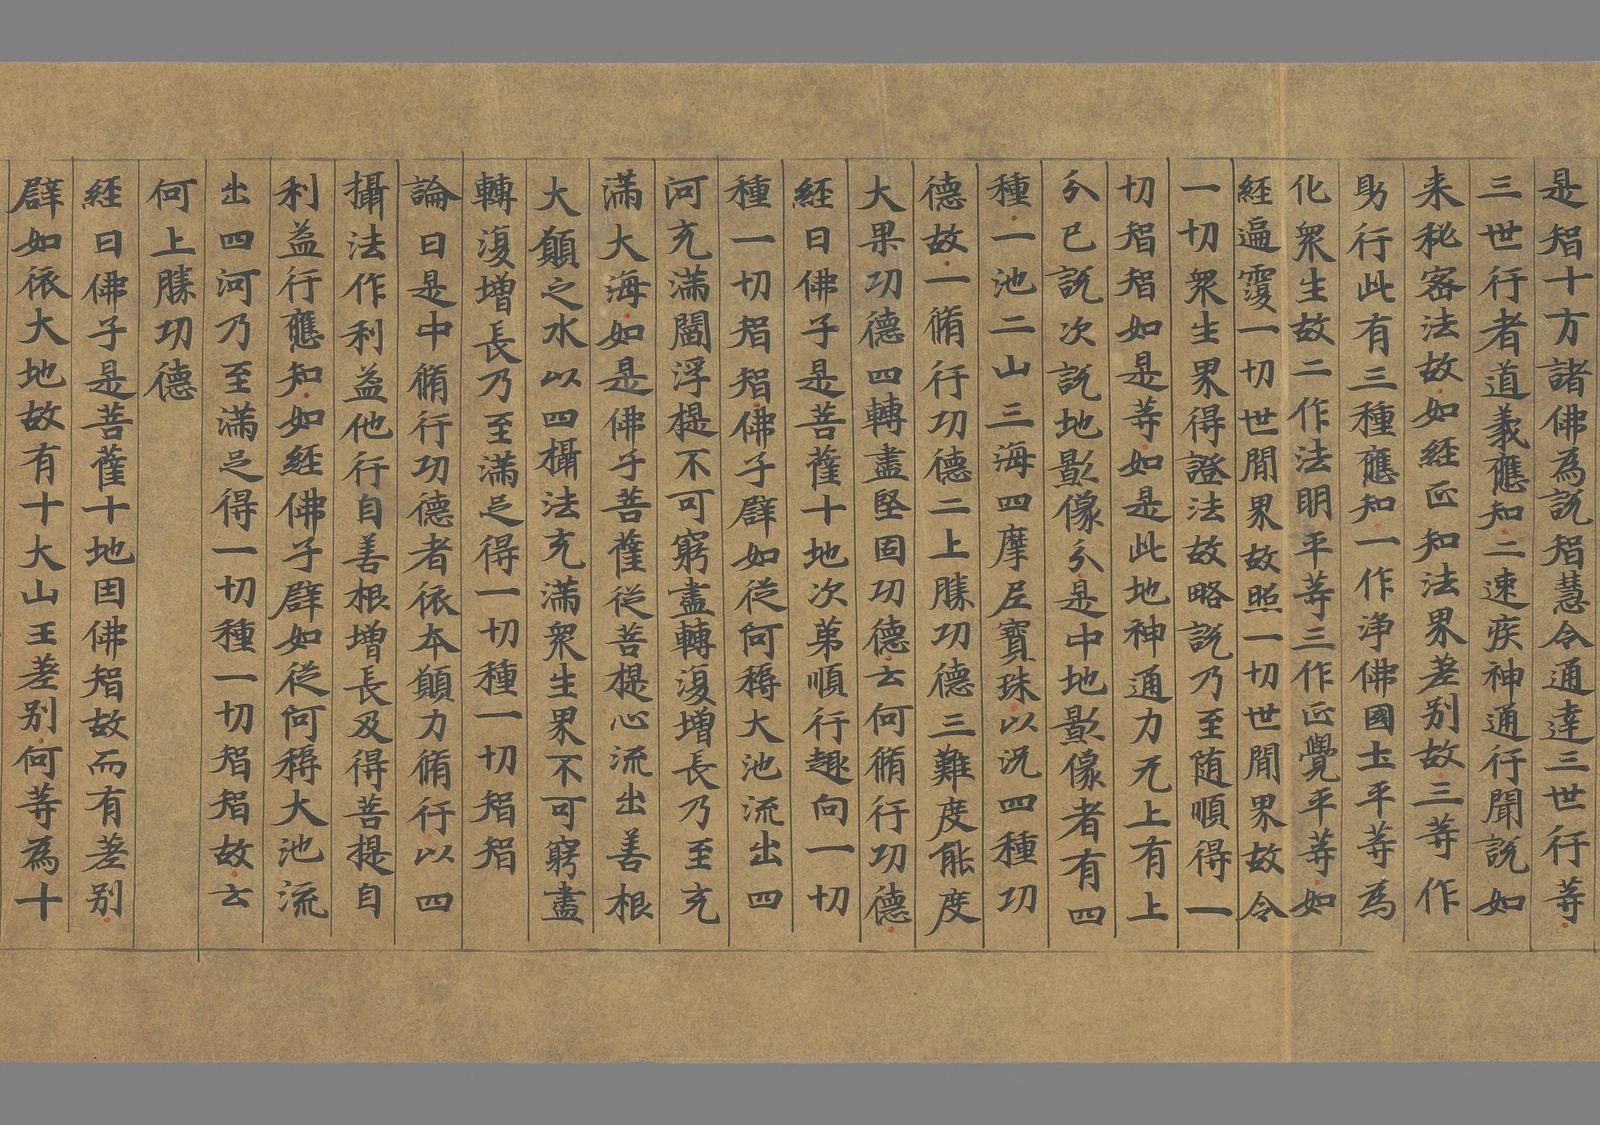 是智十方諸佛為説智慧令通達三世行等
三世行者道義應知二速疾神通行聞説如
来秘密法故如經正知法界差别故三等作
身行此有三種應知一作浄佛國土平等為
化衆生故二作法明平等三作正覺平等如
經遍覆一切世間界故照一切世間界故令
一切衆生界得證法故略説乃至随順得一
切智智如是等如是此地神通力无上有上
分已説次説地影像分是中地影像者有四
種一池二山三海四摩尼寶珠以况四種功
德故一脩行功德二上勝功德三難度能度
大果功德四轉盡堅固功德云何脩行功德
經曰佛子是菩薩十地次苐順行趣向一切
種一切智智佛子譬如從何耨大池流出四
河充滿閻浮提不可窮盡轉復增長乃至充
滿大海如是佛子菩薩從菩提心流出善根
大願之水以四攝法充滿衆生界不可窮盡
轉復增長乃至滿足得一切種一切智智
論曰是中脩行功德者依本願力脩行以四
攝法作利益他行自善根增長及得菩提自
利益行應知如經佛子譬如從何耨大池流
出四河乃至滿足得一切種一切智智故云
何上勝功德
經曰佛子是菩薩十地因佛智故而有差别
譬如依大地故有十大山王差别何等為十